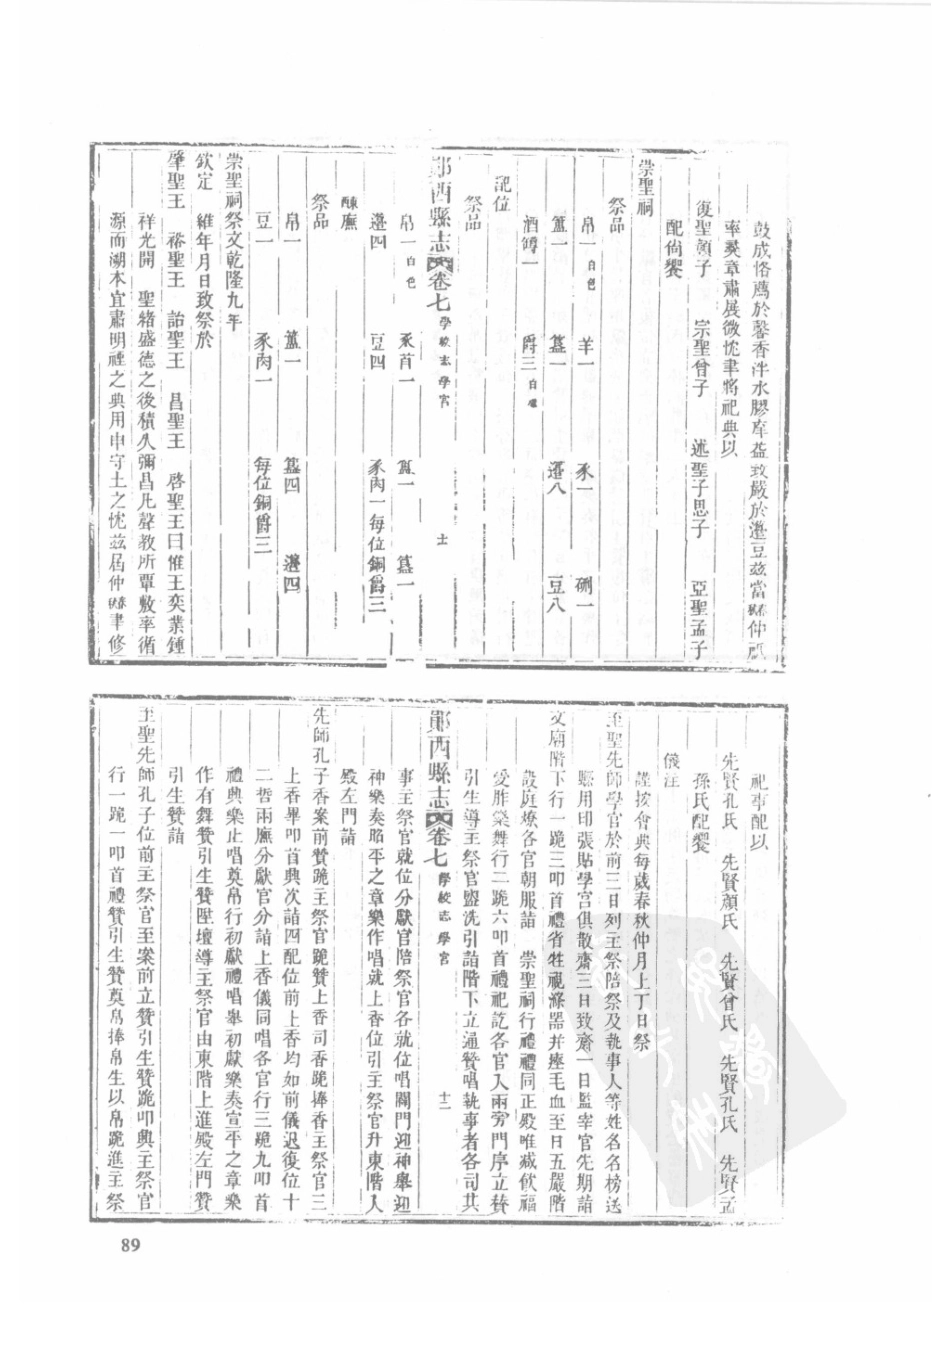 鼓成恪薦於馨香泮水膠庠益致嚴於籩豆茲當仲
率彝章肅展微忱聿將祀典以
復聖顏子　宗聖曾子　述聖子思子　亞聖孟子
配尚饗
崇聖祠
祭品
帛一白色　羊一　豕一　鉶一
簠一　簋一　籩八　豆八
酒罇一　爵三白磁
配位
祭品
鄖西縣志　卷七　學校志　學宮　十一
帛一白色　豕首一　簠一　簋一
籩四　豆四　豕肉一每位銅爵三
東廡
祭品
帛一　簠一　簋四　籩四
豆一　豕肉一　每位銅爵三
崇聖祠祭文乾隆九年
欽定　維年月日致祭於
肇聖王　裕聖王　詒聖王　昌聖王　啓聖王曰惟王奕葉鍾
祥光開　聖緒盛德之後積久彌昌凡聲教所覃敷率循
源而溯本宜肅明禋之典用申守土之忱茲屆仲春秋聿修
祀事配以
先賢孔氏　先賢顏氏　先賢曾氏　先賢孔氏　先賢孟
孫氏配饗
儀注
謹按會典每歲春秋仲月上丁日祭
至聖先師學官於前三日列主祭陪祭及執事人等姓名名榜送
縣用印張貼學宮俱散齋三日致齋一日監宰官先期詣
文廟階下行一跪三叩首禮省牲視滌器并瘞毛血至日五嚴階
設庭燎各官朝服詣　崇聖祠行禮禮同正殿唯減飲福
受胙樂舞行二跪六叩首禮祀訖各官入兩旁門序立
引生導主祭官盥洗引詣階下立通贊唱執事者各司其
鄖西縣志　卷七　學校志　學宮　十二
事主祭官就位分獻官陪祭官各就位唱闢門迎神舉迎
神樂奏昭平之章樂作唱就上香位引主祭官升東階入
殿左門詣
先師孔子香案前贊跪主祭官跪贊上香司香跪捧香主祭官三
上香畢叩首興次詣四配位前上香均如前儀退復位十
二哲兩廡分獻官分詣上香儀同唱各官行三跪九叩首
禮興樂止唱奠帛行初獻禮唱舉初獻樂奏宣平之章樂
作有舞贊引生贊陞壇導主祭官由東階上進殿左門贊
引生贊詣
至聖先師孔子位前主祭官至案前立贊引生贊跪叩興主祭官
行一跪一叩首禮贊引生贊奠帛捧帛生以帛跪進主祭
89